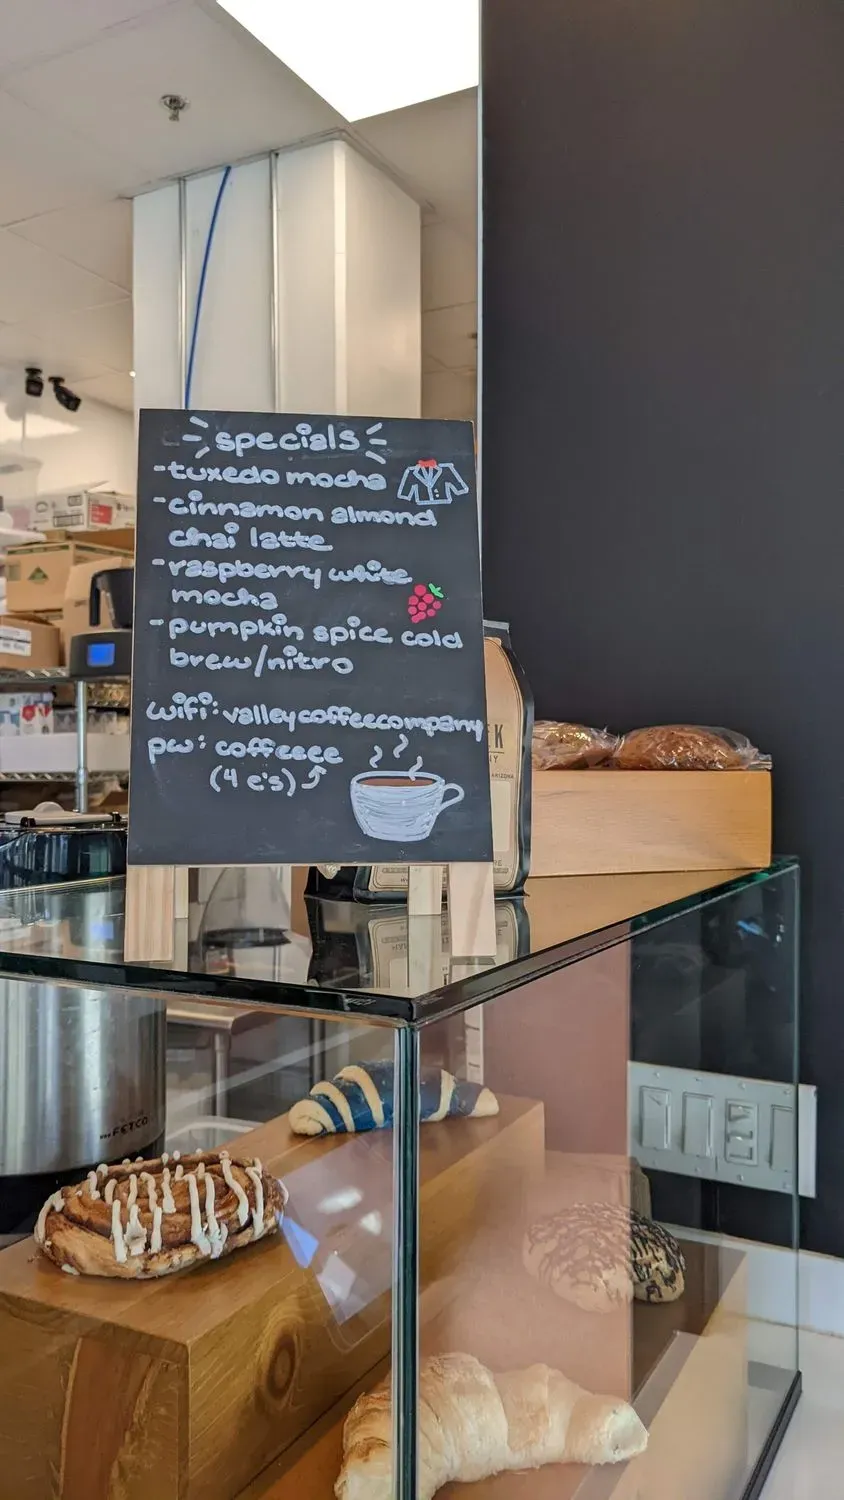 specials
-tuxedo mocha
-cinnamon almond
chai latte
-raspberry white
mocha
-pumpkin spice cold
brew/nitro
wifi: valleycoffeecompany
pw: coffeeee
(4 e's)
EK
NY
ARIZONA
www.FETCO